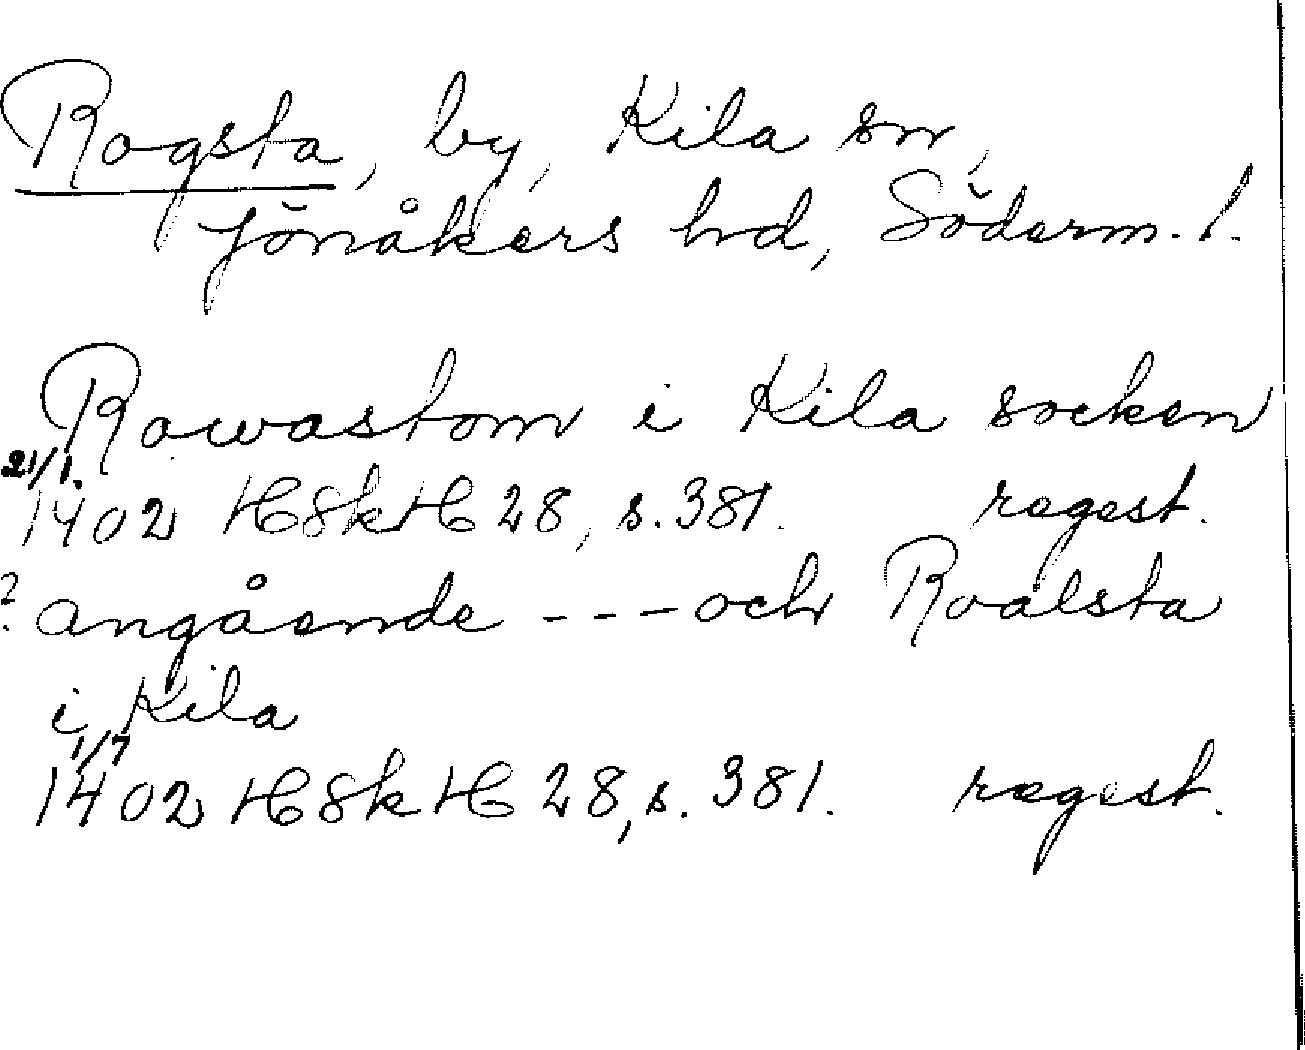 Rogsta, by, Kila sn,
Jönåkers hd, Söderm. l.
Rowastom i Kila socken
21/1.
1402 HSkH 28, s. 381. regest.
? angående --- och Roalsta
i Kila
1/7
1402 HSkH 28, s. 381. regest.